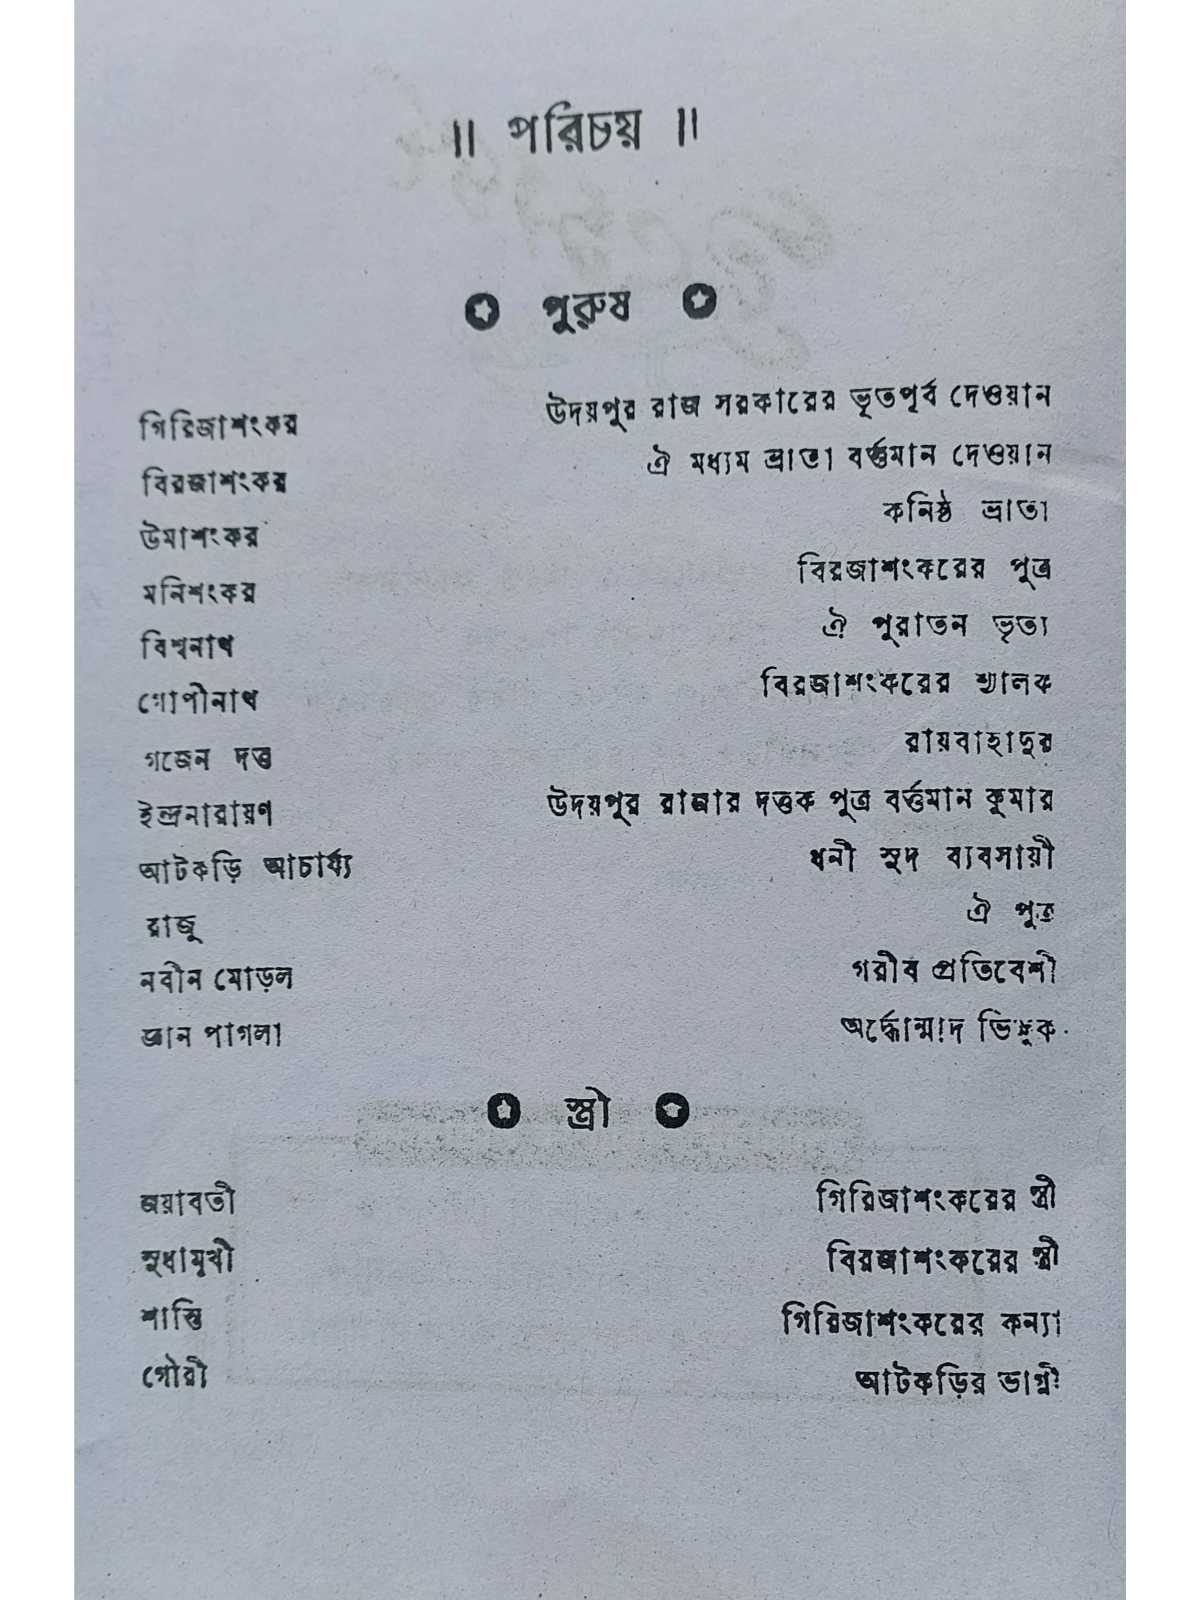 ॥ পরিচয় ॥
পুরুষ
গিরিজাশংকর উদয়পুর রাজ সরকারের ভূতপূর্ব দেওয়ান
বিরজাশংকর ঐ মধ্যম ভ্রাতা বর্ত্তমান দেওয়ান
উমাশংকর কনিষ্ঠ ভ্রাতা
মনিশংকর বিরজাশংকরের পুত্র
বিশ্বনাথ ঐ পুরাতন ভৃত্য
গোপীনাথ বিরজাশংকরের শ্যালক
গজেন দত্ত রায়বাহাদুর
ইন্দ্রনারায়ণ উদয়পুর রাজার দত্তক পুত্র বর্ত্তমান কুমার
আটকড়ি আচার্য্য ধনী সুদ ব্যবসায়ী
রাজু ঐ পুত্র
নবীন মোড়ল গরীব প্রতিবেশী
জ্ঞান পাগলা অর্দ্ধোন্মাদ ভিক্ষুক
স্ত্রী
জয়াবতী গিরিজাশংকরের স্ত্রী
সুধামুখী বিরজাশংকরের স্ত্রী
শান্তি গিরিজাশংকরের কন্যা
গৌরী আটকড়ির ভাগ্নী